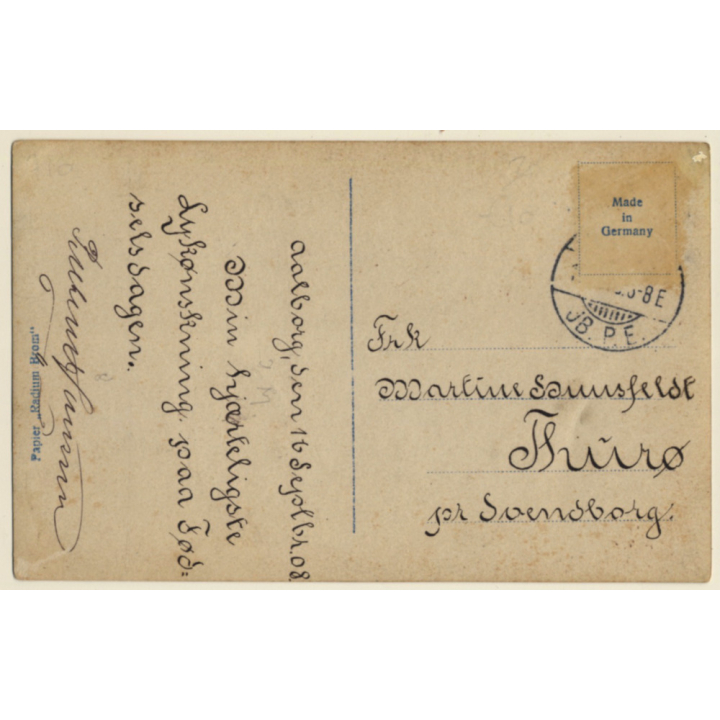 Aalborg, den 16 Septbr. 08
Min hjærteligste
Lykønskning paa Fød=
selsdagen.
Made
in
Germany
8 E
JB. P. E.
Frk
Martine
Thurø
pr Svendborg.
Papier „Radium Brom“